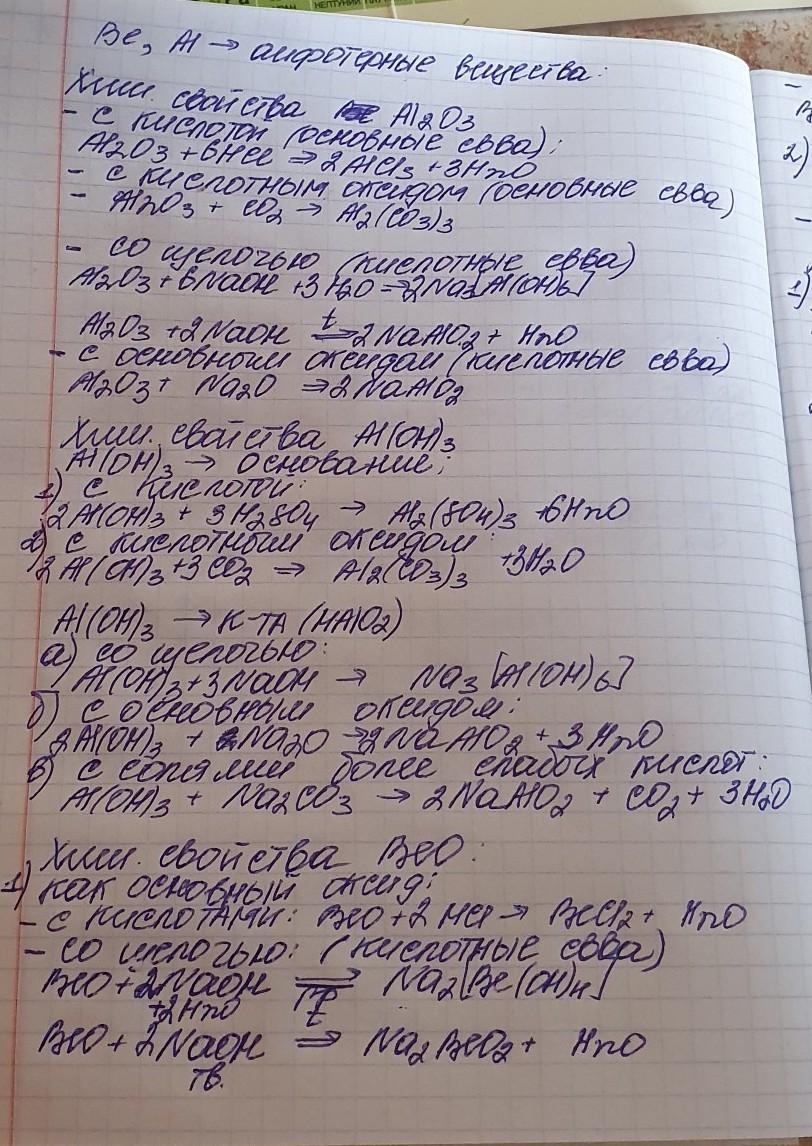 НЕПТУНИЙ
Be, Al → амфотерные вещества:
Хим. свойства Al2O3
- с кислотой (основные св-ва):
Al2O3 + 6HCl ⇒ 2AlCl3 + 3H2O
- с кислотным оксидом (основные св-ва)
- Al2O3 + CO2 → Al2(CO3)3
- со щелочью (кислотные св-ва)
Al2O3 + 6NaOH + 3H2O ⇒ 2Na3[Al(OH)6]
t
Al2O3 + 2NaOH ⇒ 2NaAlO2 + H2O
- с основным оксидом (кислотные св-ва)
Al2O3 + Na2O ⇒ 2NaAlO2
Хим. свойства Al(OH)3
Al(OH)3 → основание;
1) с кислотой:
2Al(OH)3 + 3H2SO4 → Al2(SO4)3 + 6H2O
2) с кислотным оксидом:
2Al(OH)3 + 3CO2 ⇒ Al2(CO3)3 + 3H2O
Al(OH)3 → к-та (HAlO2)
а) со щелочью:
Al(OH)3 + 3NaOH → Na3[Al(OH)6]
б) с основным оксидом:
2Al(OH)3 + Na2O → 2NaAlO2 + 3H2O
в) с солями более слабых кислот:
Al(OH)3 + Na2CO3 → 2NaAlO2 + CO2 + 3H2O
Хим. свойства BeO:
1) как основный оксид:
- с кислотами: BeO + 2HCl → BeCl2 + H2O
- со щелочью: (кислотные св-ва)
BeO + 2NaOH ⇒ Na2[Be(OH)4]
+2H2O
t
BeO + 2NaOH ⇒ Na2BeO2 + H2O
тв.
2)
1)